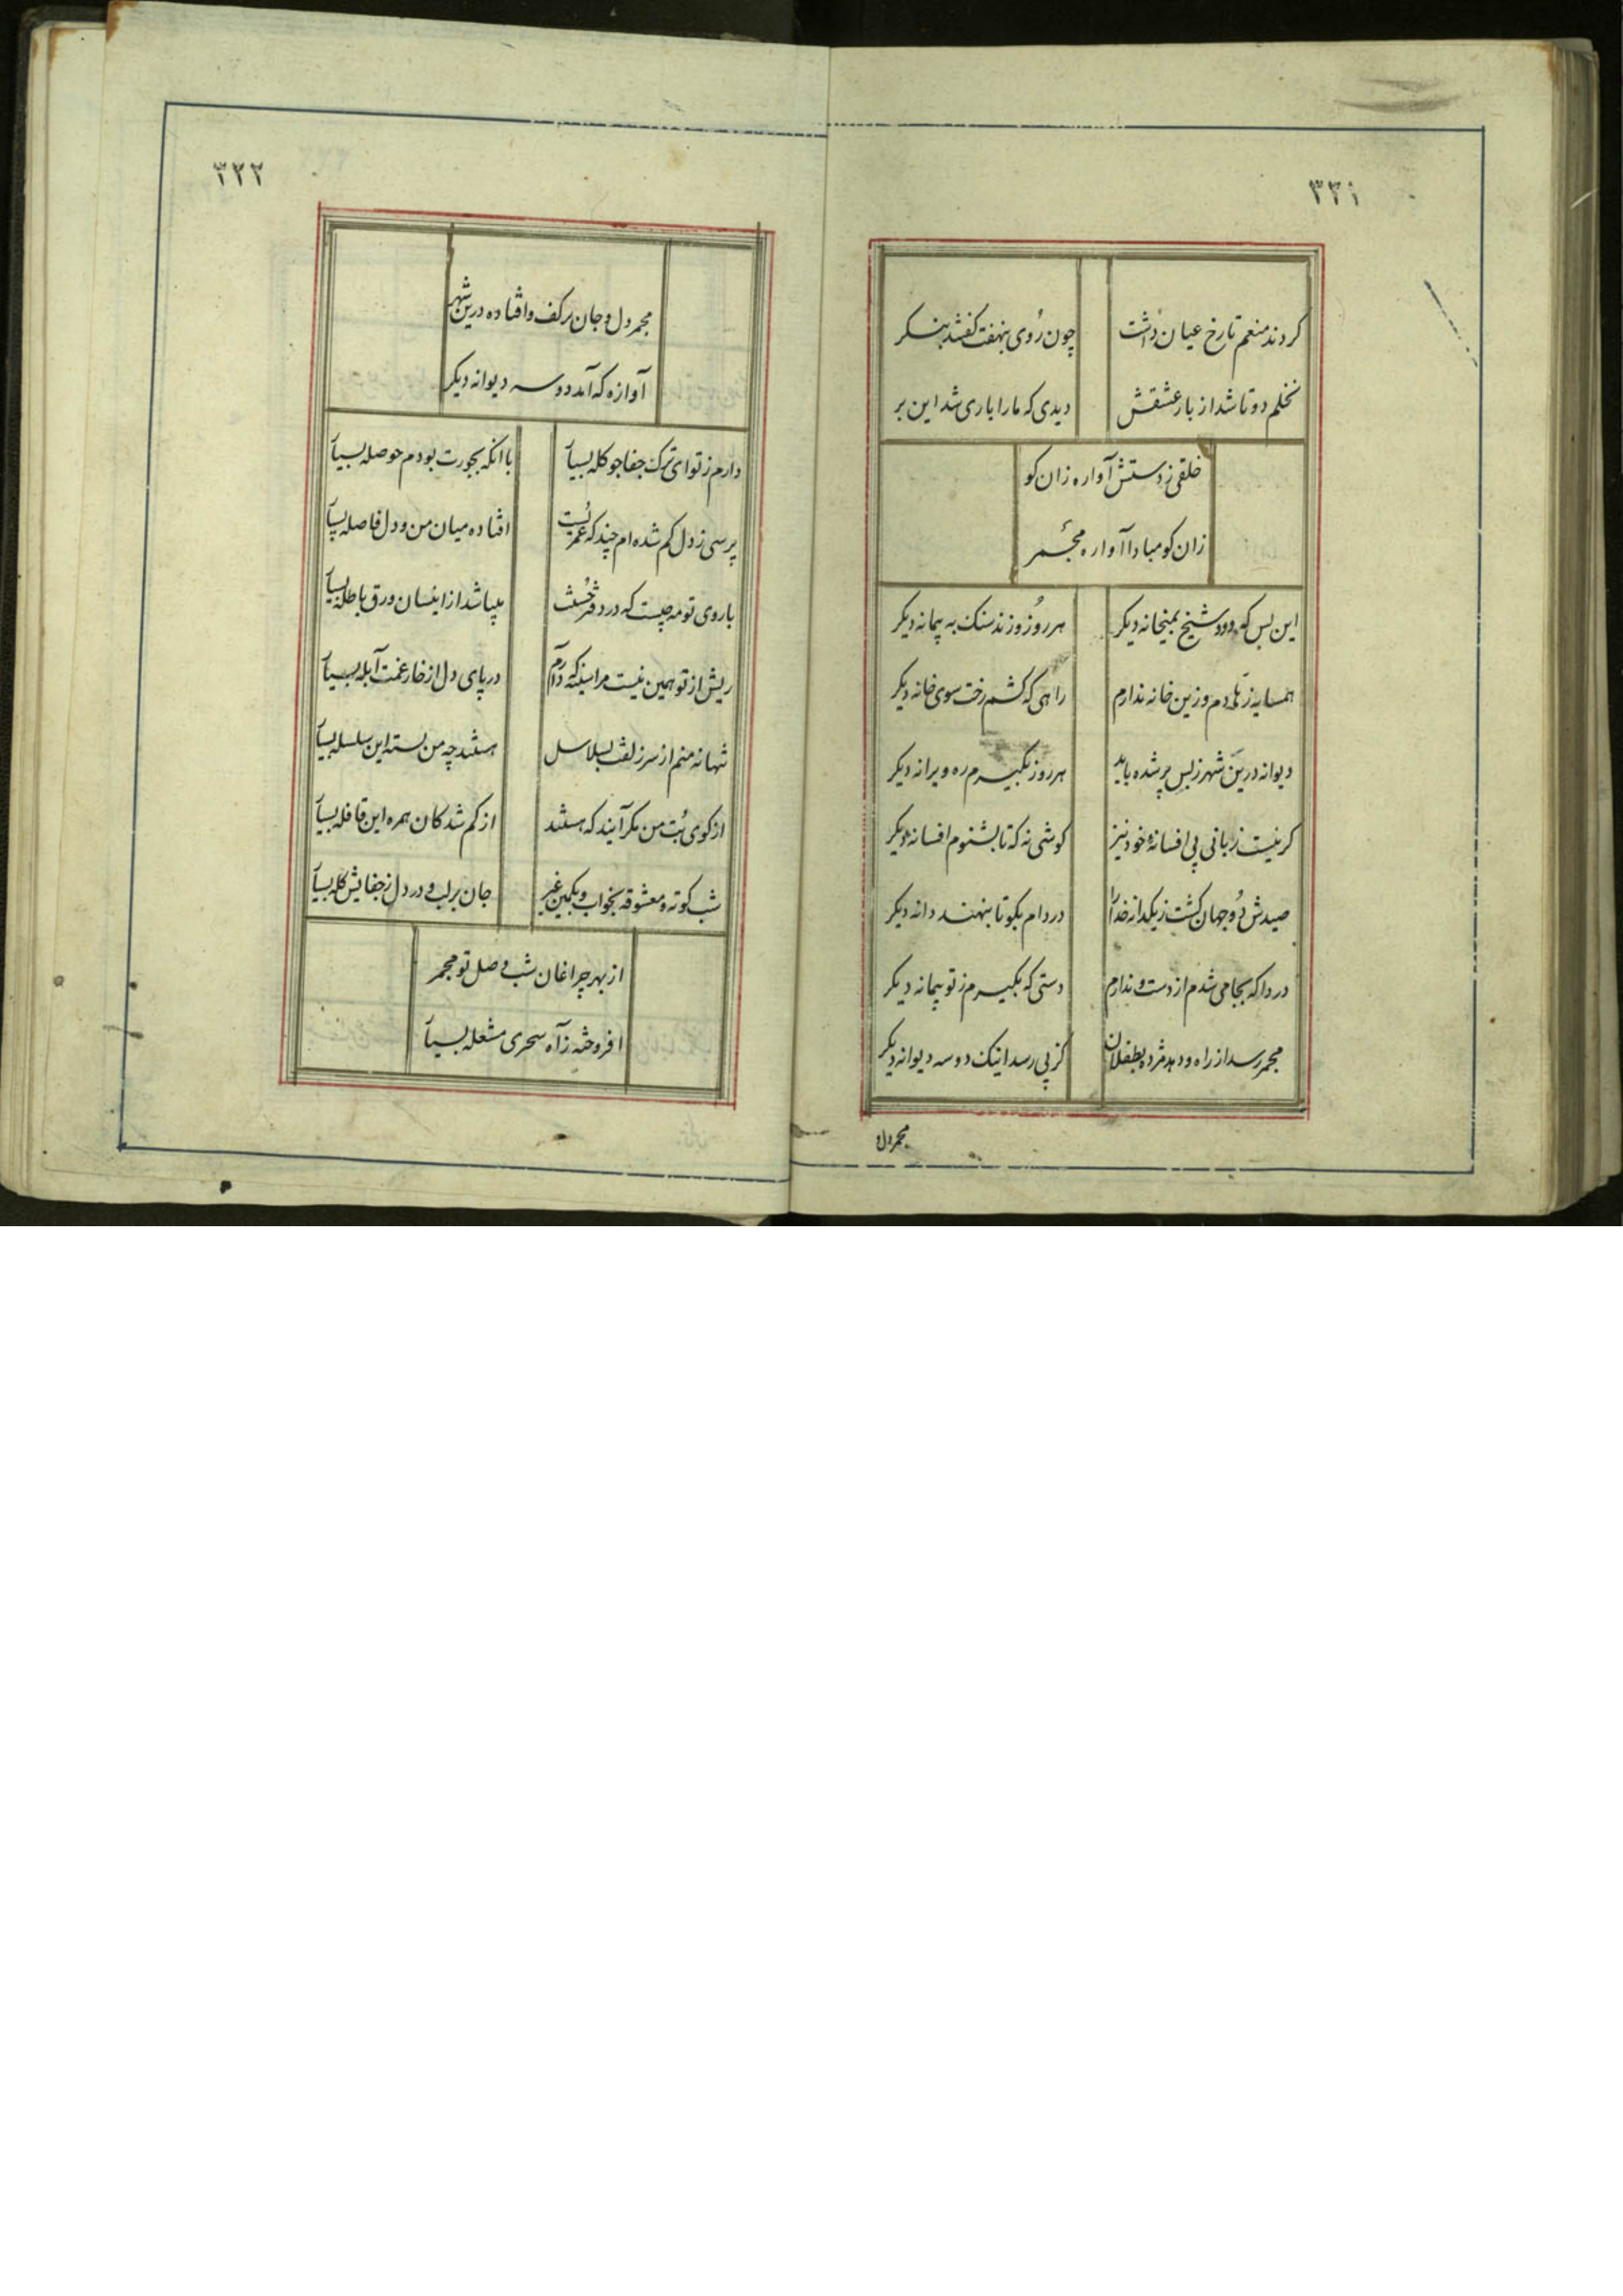 ۳۳۱
کردند منعم تا رخ عیان داشت چون روی بنهفت گفتند بنگر
نخلم دوتا شد از بار عشقش دیدی که ما را باری شد این بر
خلقی ز دستش آواره زان کو
زان کو مبادا آواره مجمر
این بس که رود شیخ بمیخانه دیکر هر روز و زند سنک به پیمانه دیکر
همسایه ز هی دم وزین خانه ندارم راهی که کشم رخت سوی خانه دیکر
دیوانه درین شهر ز بس پر شده باید هر روز بگیرم ره ویرانه دیکر
کر نیست زبانی پی افسانه خود نیز کوشی نه که تا بشنوم افسانه دیکر
صیدش دو جهان کشت ز یکدانه خدا را در دام بکو تا بنهند دانه دیکر
دردا که بجامی شدم از دست و ندارم دستی که بکیرم ز تو پیمانه دیکر
مجمر رسد از راه و دهد مژده بطفلان کز پی رسد اینک دو سه دیوانه دیکر
مجمر دل و
۳۳۲
مجمر دل و جان بر کف و افتاده درین شهر
آوازه که آمد دو سه دیوانه دیکر
دارم ز تو ای ترک جفاجو کله بسیار با آنکه بجورت بودم حوصله بسیار
پرسی ز دل کم شده ام چند که عمریست افتاده میان من و دل فاصله بسیار
با روی تو مه چیست که در دفتر حسنت بیپا شد از اینسان ورق باطله بسیار
ریش از تو همین نیست مرا سینه که دارم در پای دل از خار غمت آبله بسیار
تنها نه منم از سر زلفت بسلاسل هستند چه من بسته این سلسله بسیار
از کوی بت من مکر آیند که هستند از کم شدکان همره این قافله بسیار
شب کوته و معشوقه بخواب و بکمین غیر جان بر لب و در دل ز جفایش کله بسیار
از بهر چراغان شب وصل تو مجمر
افروخته ز آه سحری مشعله بسیار